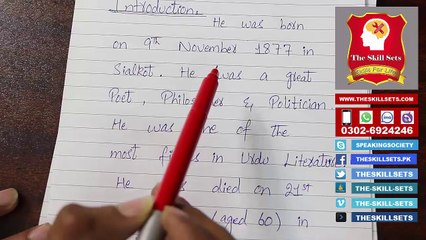 Introduction.
He was born
on 9th November 1877 in
Sialkot. He was a great
Poet, Philosopher & Politician
He was one of the
most in Urdu Literature
He was died on 21st
(aged 60) in
The Skill Sets
Skills For Life
WWW.THESKILLSETS.COM
0302-6924246
SPEAKINGSOCIETY
THESKILLSETS.PK
THE-SKILL-SETS
THE-SKILLSETS
THE-SKILL-SETS